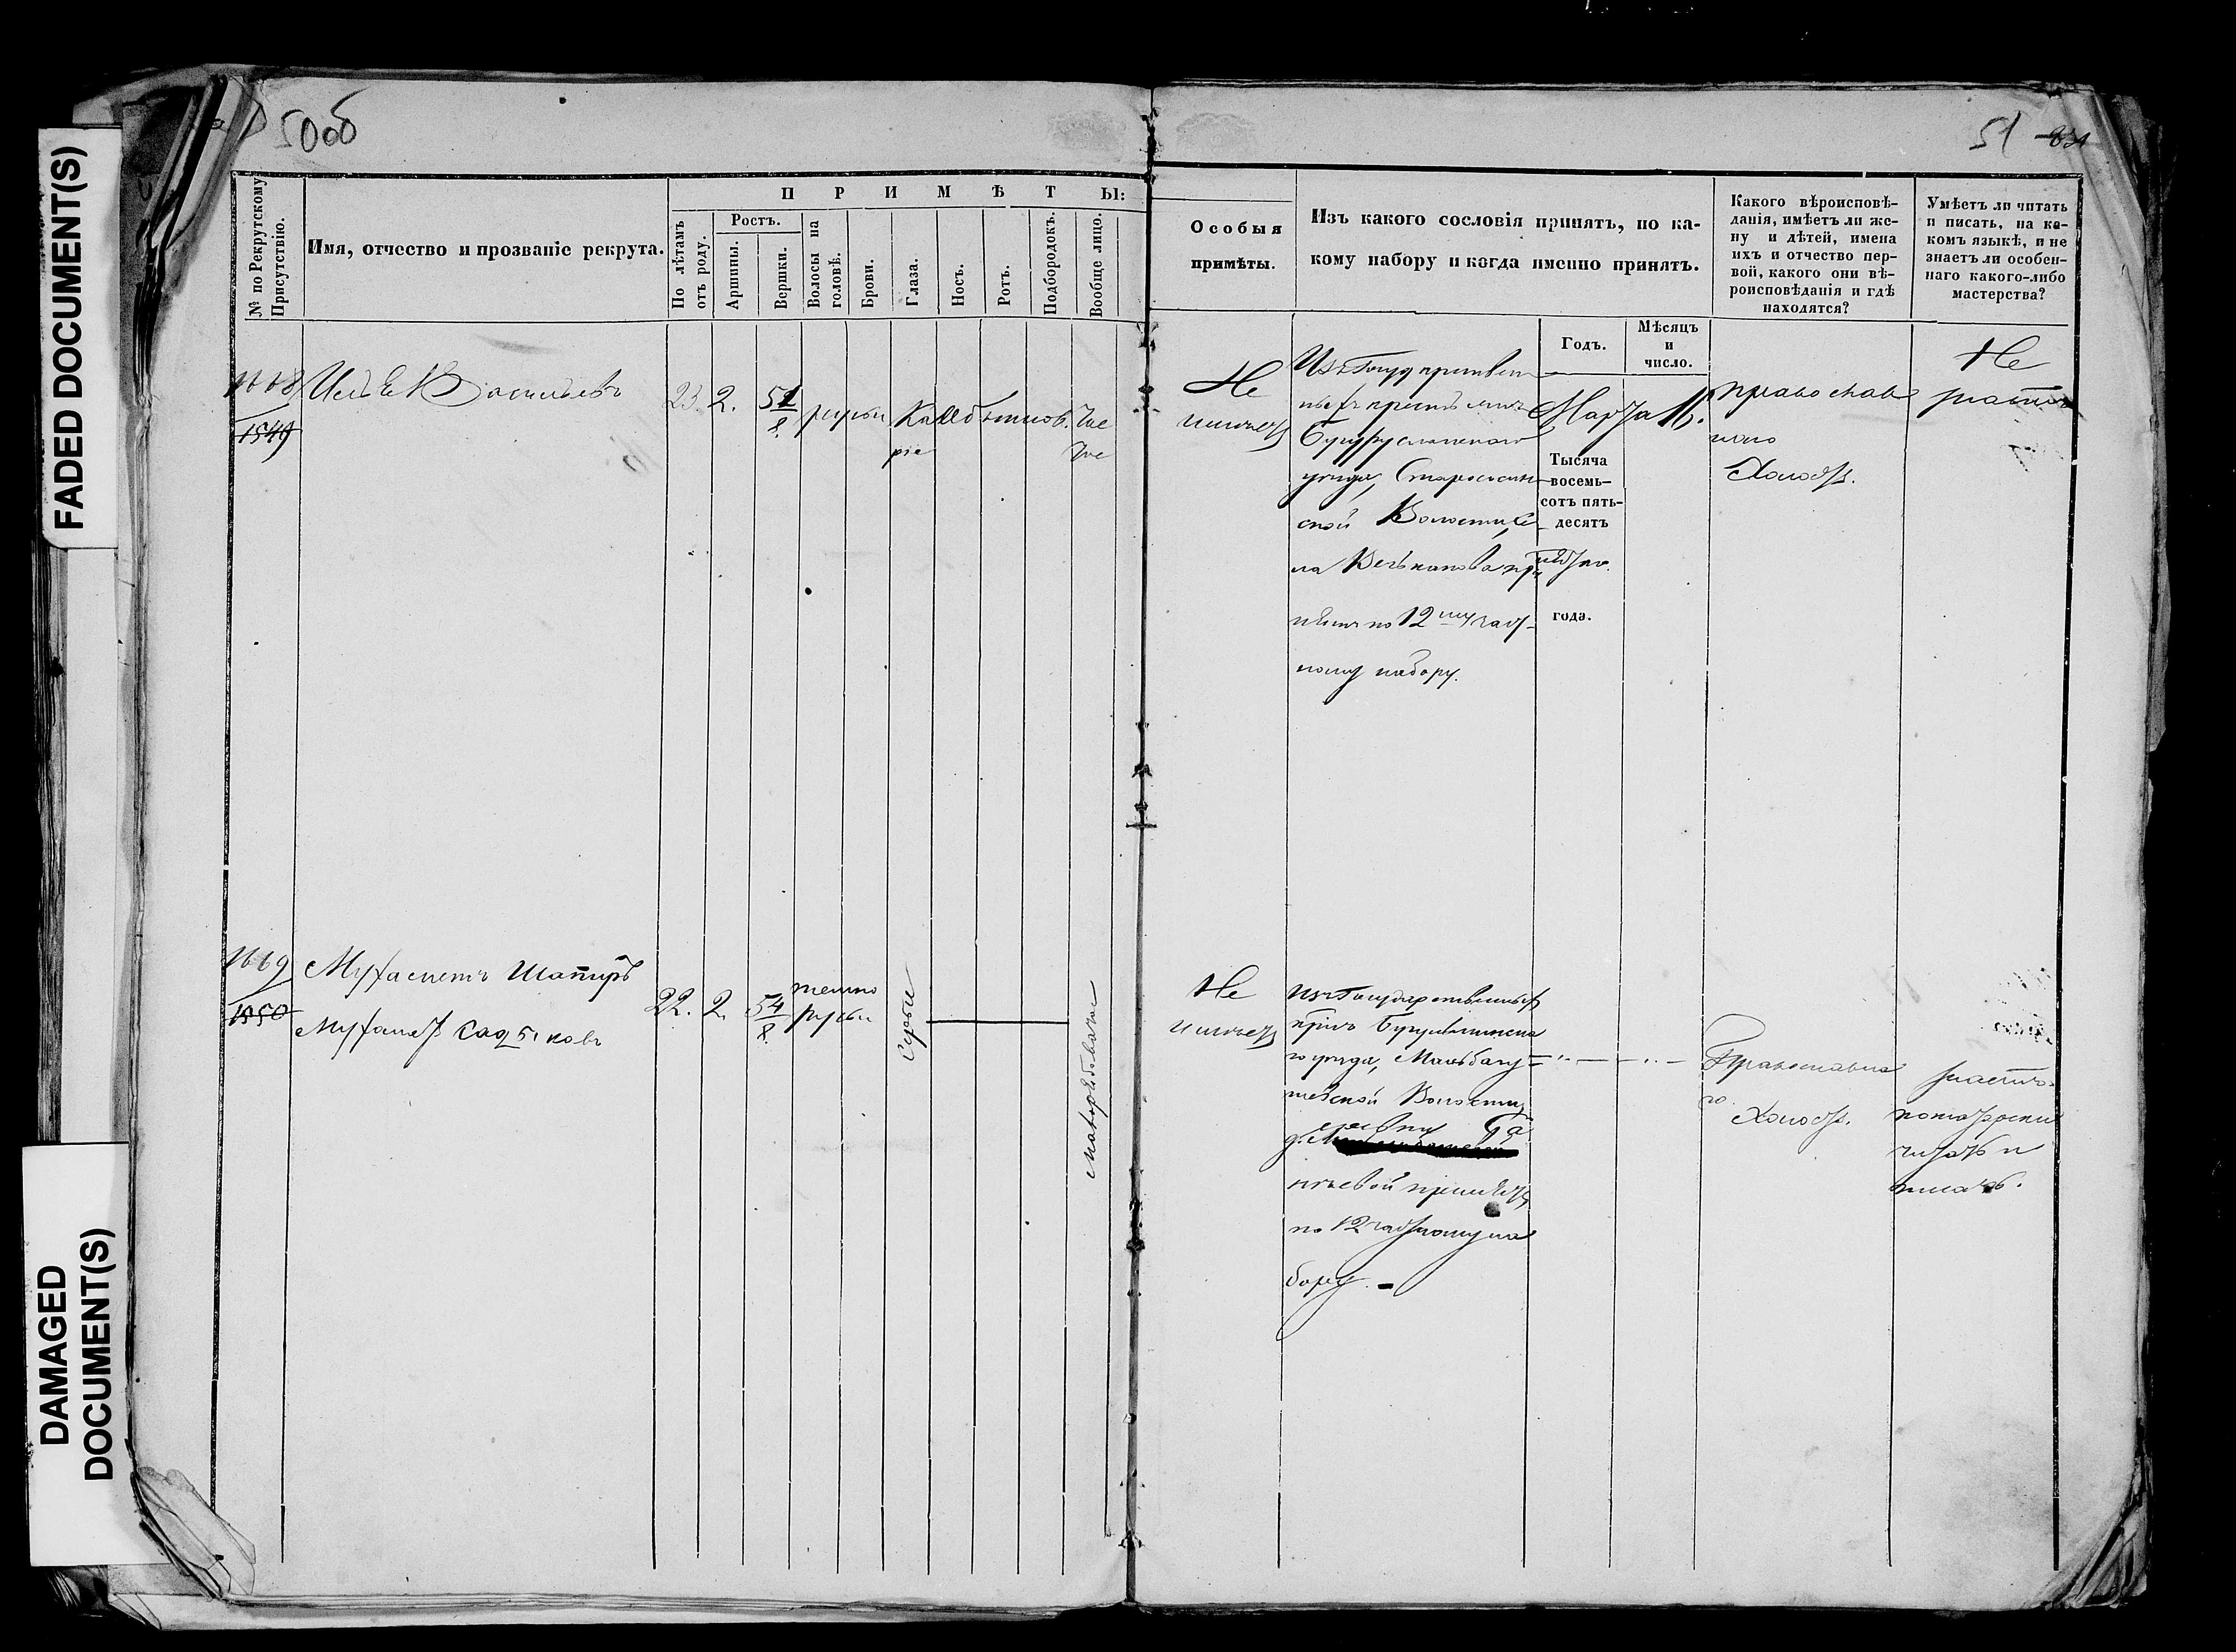 FADED DOCUMENT(S)
DAMAGED
DOCUMENT(S)
50об
51
П Р И М Ѣ Т Ы:
№ по Рекрутскому
Присутствію.
Имя, отчество и прозваніе рекрута.
По лѣтамъ
отъ роду.
Ростъ.
Аршины.
Вершки.
Волосы на
головѣ.
Брови.
Глаза.
Носъ.
Ротъ.
Подбородокъ.
Вообще лицо.
Особыя
примѣты.
Изъ какого сословія принятъ, по ка-
кому набору и когда именно принятъ.
Годъ.
Мѣсяцъ
и
число.
Какого вѣроисповѣ-
данія, имѣетъ ли же-
ну и дѣтей, имена
ихъ и отчество пер-
вой, какого они вѣ-
роисповѣданія и гдѣ
находятся?
Умѣетъ ли читать
и писать, на ка-
комъ языкѣ, и не
знаетъ ли особен-
наго какого-либо
мастерства?
1668
1549
Васильевъ
23. 2. 5 1/8. русы Каріе обыкнов. чис
тое
Не
имѣетъ
Изъ Государствен
ныхъ крестьянъ
Бугурусланскаго
уѣзда,
ской Волости, се
ла при
нятъ по 12му част
ному набору.
Марта 16.
Тысяча
восемь-
сотъ пять-
десятъ
пятаго
года.
православ
наго
Холостъ.
Не
знаетъ
1669
1550
Мухаметъ
22. 2. 5 4/8. темно
русы Серые
Не
имѣетъ
Изъ Государственныхъ
крнъ Бугульминска
го уѣзда,
Волости,
принятъ
по 12 частному на
бору. -
Православна
го
Холостъ.
знаетъ
потатарски
читать и
писать.